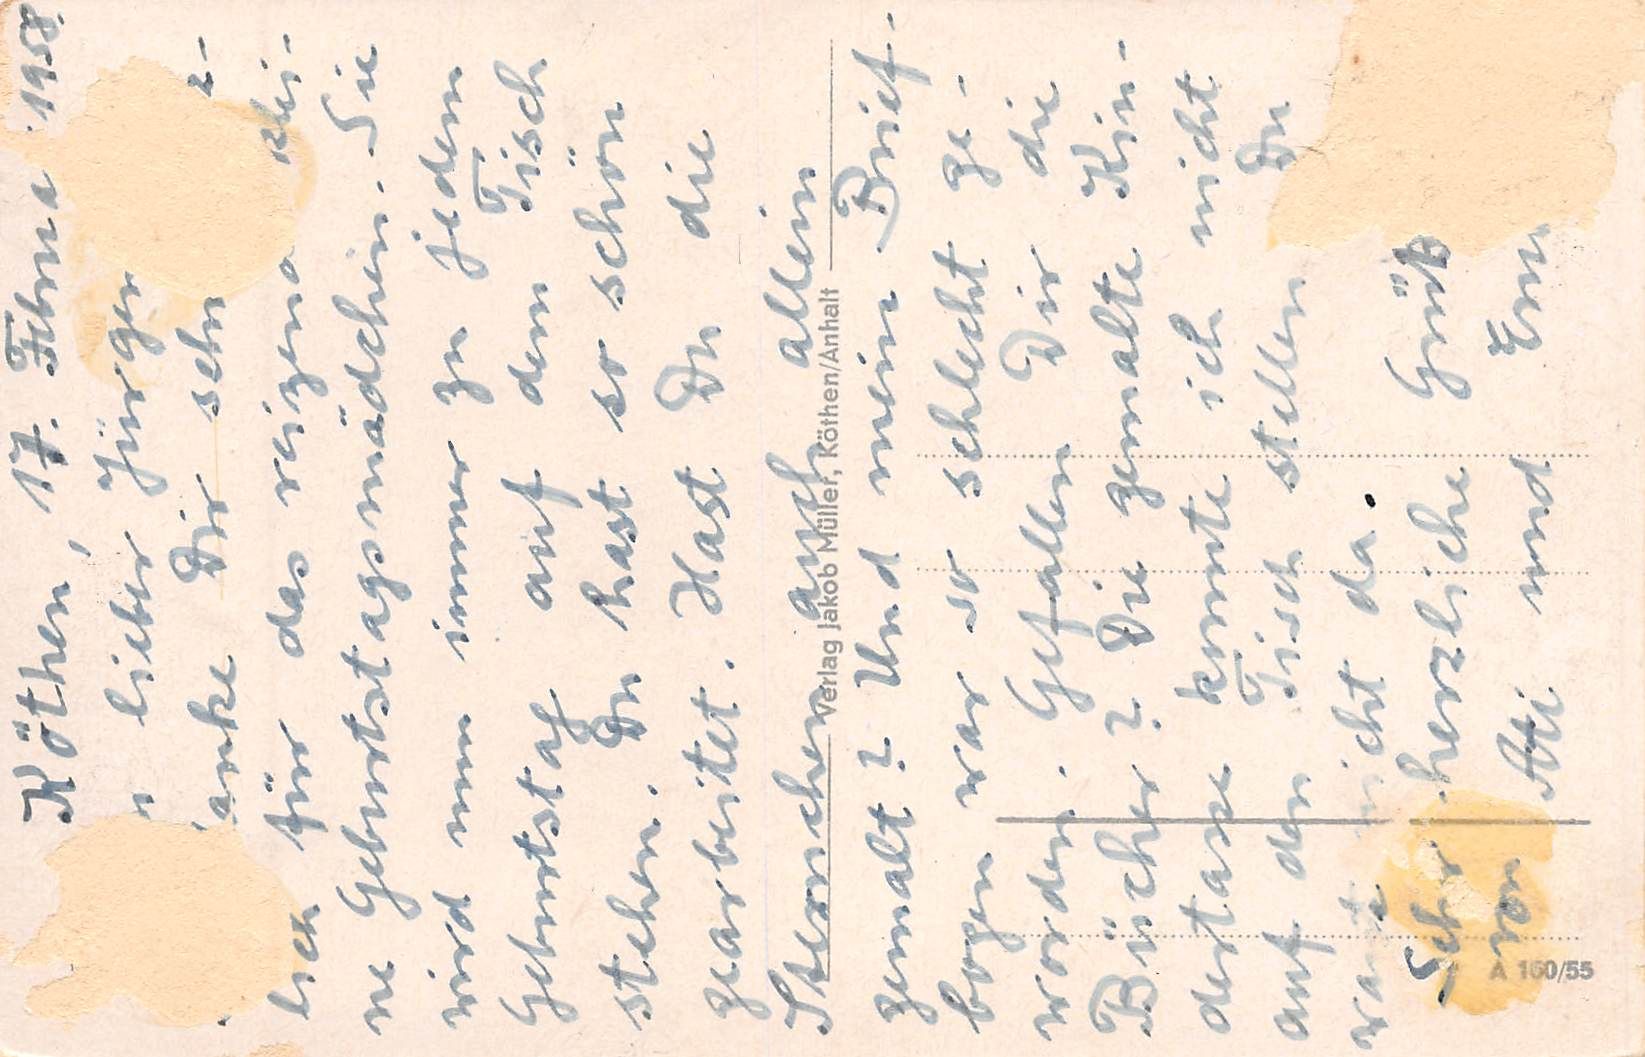 Köthen, 17. Febru 1958.
lieber Jürgen
anke Dir sehr z-
lich für das reizend klei-
ne Geburtstagsmädchen. Sie
wird nun immer zu jedem
Geburtstag auf dem Tisch
stehen. Du hast so schön
gearbeitet. Hast Du die
Sternchen auch allein
gemalt? Und mein Brief-
bogen war so schlecht ge-
worden. Gefallen Dir die
Bücher? Die gemalte Kin-
dertasse konnte ich nicht
auf den Tisch stellen Du
warst nicht da.
Sehr herzliche Grüß
von Ati und Em
Verlag Jakob Müller, Köthen/Anhalt
A 160/55